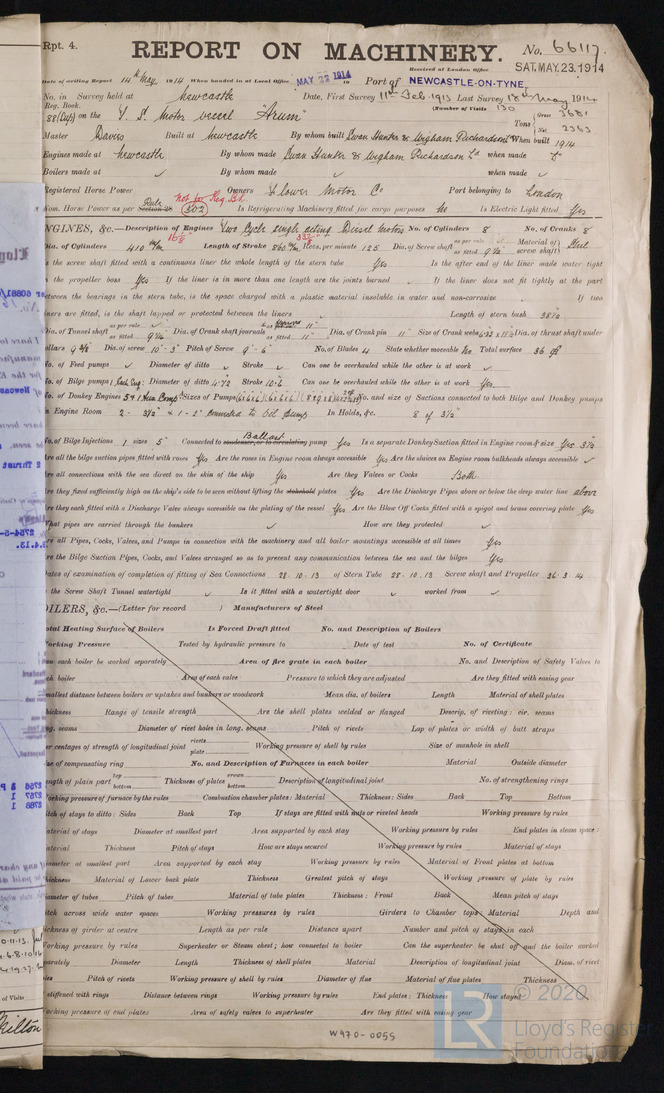 Rpt. 4.
REPORT ON MACHINERY.
No. 66117.
Received at London Office
SAT. MAY. 23. 1914
Date of writing Report 14th May 1914 When handed in at Local Office MAY 22 1914 Port of NEWCASTLE-ON-TYNE.
No. in Survey held at Newcastle Date, First Survey 11th Feb. 1913 Last Survey 18th May 1914
Reg. Book.
(Number of Visits 130
88 (Sup) on the T. S. Motor vessel "Arum" Tons Gross 3681 Net 2363
Master Davies Built at Newcastle By whom built Swan Hunter & Wigham Richardson Ld When built 1914
Engines made at Newcastle By whom made Swan Hunter & Wigham Richardson Ld when made
Boilers made at By whom made when made
Registered Horse Power Owners Flower Motor Co Port belonging to London
Nom. Horse Power as per Rule 302 not for Reg. Bk. Is Refrigerating Machinery fitted for cargo purposes No Is Electric Light fitted Yes
ENGINES, &c.—Description of Engines Two Cycle single acting Diesel Motors No. of Cylinders 8 No. of Cranks 8
Dia. of Cylinders 410 m/m Length of Stroke 860 m/m Revs. per minute 125 Dia. of Screw shaft as per rule as fitted 9 1/2 Material of screw shaft Steel
Is the screw shaft fitted with a continuous liner the whole length of the stern tube Yes Is the after end of the liner made water tight
in the propeller boss Yes If the liner is in more than one length are the joints burned If the liner does not fit tightly at the part
between the bearings in the stern tube, is the space charged with a plastic material insoluble in water and non-corrosive If two
liners are fitted, is the shaft lapped or protected between the liners Length of stern bush 38 1/2
Dia. of Tunnel shaft as per rule as fitted 9 1/4 Dia. of Crank shaft journals as fitted 11" Dia. of Crank pin 11" Size of Crank webs Dia. of thrust shaft under
collars 9 3/8 Dia. of screw 10'-3" Pitch of Screw 9'-6" No. of Blades 4 State whether moveable No Total surface 36 sq ft
No. of Feed pumps Diameter of ditto Stroke Can one be overhauled while the other is at work
No. of Bilge pumps 1 Each Eng: Diameter of ditto 4.72 Stroke 10.6 Can one be overhauled while the other is at work Yes
No. of Donkey Engines Sizes of Pumps No. and size of Suctions connected to both Bilge and Donkey pumps
In Engine Room 2 - 3 1/2" & 1 - 2" connected to oil pump In Holds, &c. 8 of 3 1/2"
No. of Bilge Injections 1 sizes 5" Connected to condenser, or to circulating Ballast pump Yes Is a separate Donkey Suction fitted in Engine room & size Yes 3 1/2
Are all the bilge suction pipes fitted with roses Yes Are the roses in Engine room always accessible Yes Are the sluices on Engine room bulkheads always accessible
Are all connections with the sea direct on the skin of the ship Yes Are they Valves or Cocks Both
Are they fixed sufficiently high on the ship's side to be seen without lifting the stokehold plates Yes Are the Discharge Pipes above or below the deep water line above
Are they each fitted with a Discharge Valve always accessible on the plating of the vessel Yes Are the Blow Off Cocks fitted with a spigot and brass covering plate Yes
What pipes are carried through the bunkers How are they protected
Are all Pipes, Cocks, Valves, and Pumps in connection with the machinery and all boiler mountings accessible at all times Yes
Are the Bilge Suction Pipes, Cocks, and Valves arranged so as to prevent any communication between the sea and the bilges Yes
Dates of examination of completion of fitting of Sea Connections 28.10.13 of Stern Tube 28.10.13 Screw shaft and Propeller 3.14
Is the Screw Shaft Tunnel watertight Is it fitted with a watertight door worked from
BOILERS, &c.—(Letter for record ) Manufacturers of Steel
Total Heating Surface of Boilers Is Forced Draft fitted No. and Description of Boilers
Working Pressure Tested by hydraulic pressure to Date of test No. of Certificate
Can each boiler be worked separately Area of fire grate in each boiler No. and Description of Safety Valves to
each boiler Area of each valve Pressure to which they are adjusted Are they fitted with easing gear
Smallest distance between boilers or uptakes and bunkers or woodwork Mean dia. of boilers Length Material of shell plates
Thickness Range of tensile strength Are the shell plates welded or flanged Descrip. of riveting: cir. seams
long. seams Diameter of rivet holes in long. seams Pitch of rivets Lap of plates or width of butt straps
Per centages of strength of longitudinal joint rivets plate Working pressure of shell by rules Size of manhole in shell
Size of compensating ring No. and Description of Furnaces in each boiler Material Outside diameter
Length of plain part top bottom Thickness of plates crown bottom Description of longitudinal joint No. of strengthening rings
Working pressure of furnace by the rules Combustion chamber plates: Material Thickness: Sides Back Top Bottom
Pitch of stays to ditto: Sides Back Top If stays are fitted with nuts or riveted heads Working pressure by rules
Material of stays Diameter at smallest part Area supported by each stay Working pressure by rules End plates in steam space:
Material Thickness Pitch of stays How are stays secured Working pressure by rules Material of stays
Diameter at smallest part Area supported by each stay Working pressure by rules Material of Front plates at bottom
Thickness Material of Lower back plate Thickness Greatest pitch of stays Working pressure of plate by rules
Diameter of tubes Pitch of tubes Material of tube plates Thickness: Front Back Mean pitch of stays
Pitch across wide water spaces Working pressures by rules Girders to Chamber tops: Material Depth and
thickness of girder at centre Length as per rule Distance apart Number and pitch of stays in each
Working pressure by rules Superheater or Steam chest; how connected to boiler Can the superheater be shut off and the boiler worked
separately Diameter Length Thickness of shell plates Material Description of longitudinal joint Diam. of rivet
holes Pitch of rivets Working pressure of shell by rules Diameter of flue Material of flue plates Thickness
If stiffened with rings Distance between rings Working pressure by rules End plates: Thickness How stayed
Working pressure of end plates Area of safety valves to superheater Are they fitted with easing gear
W970-0055
© 2020
LR
Lloyd's Register
Foundation